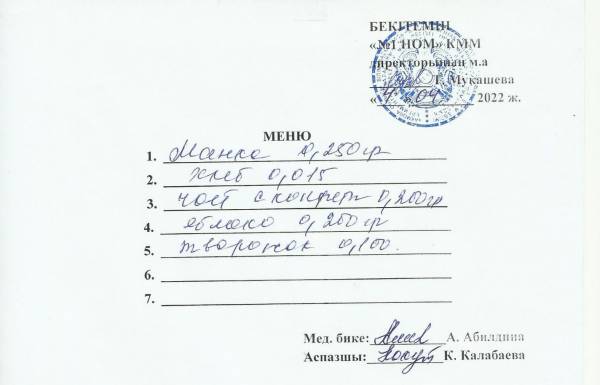 БЕКІТЕМІН
«№1 НОМ» КММ
директорының м.а
Г. Мукашева
«4» 04 2022 ж.
МЕНЮ
1. Манка 0,250гр
2. хлеб 0,015
3. чай с конфет 0,200гр
4. яблоко 0,200гр
5. творожок 0,100.
6.
7.
Мед. бике: А. Абилдина
Аспазшы: К. Калабаева